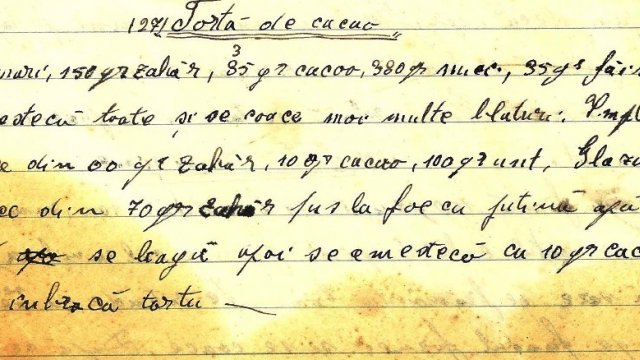 127) Tortă de cacao
150 gr zahăr, 35 gr cacao, 380 gr nuci, 35 gr
toate și se coace mai multe blaturi.
din 00 gr zahăr, 10 gr cacao, 100 gr unt,
din 70 gr zahăr pus la foc cu puțină apă
se leagă apoi se amestecă cu 10 gr
îmbracă tortu